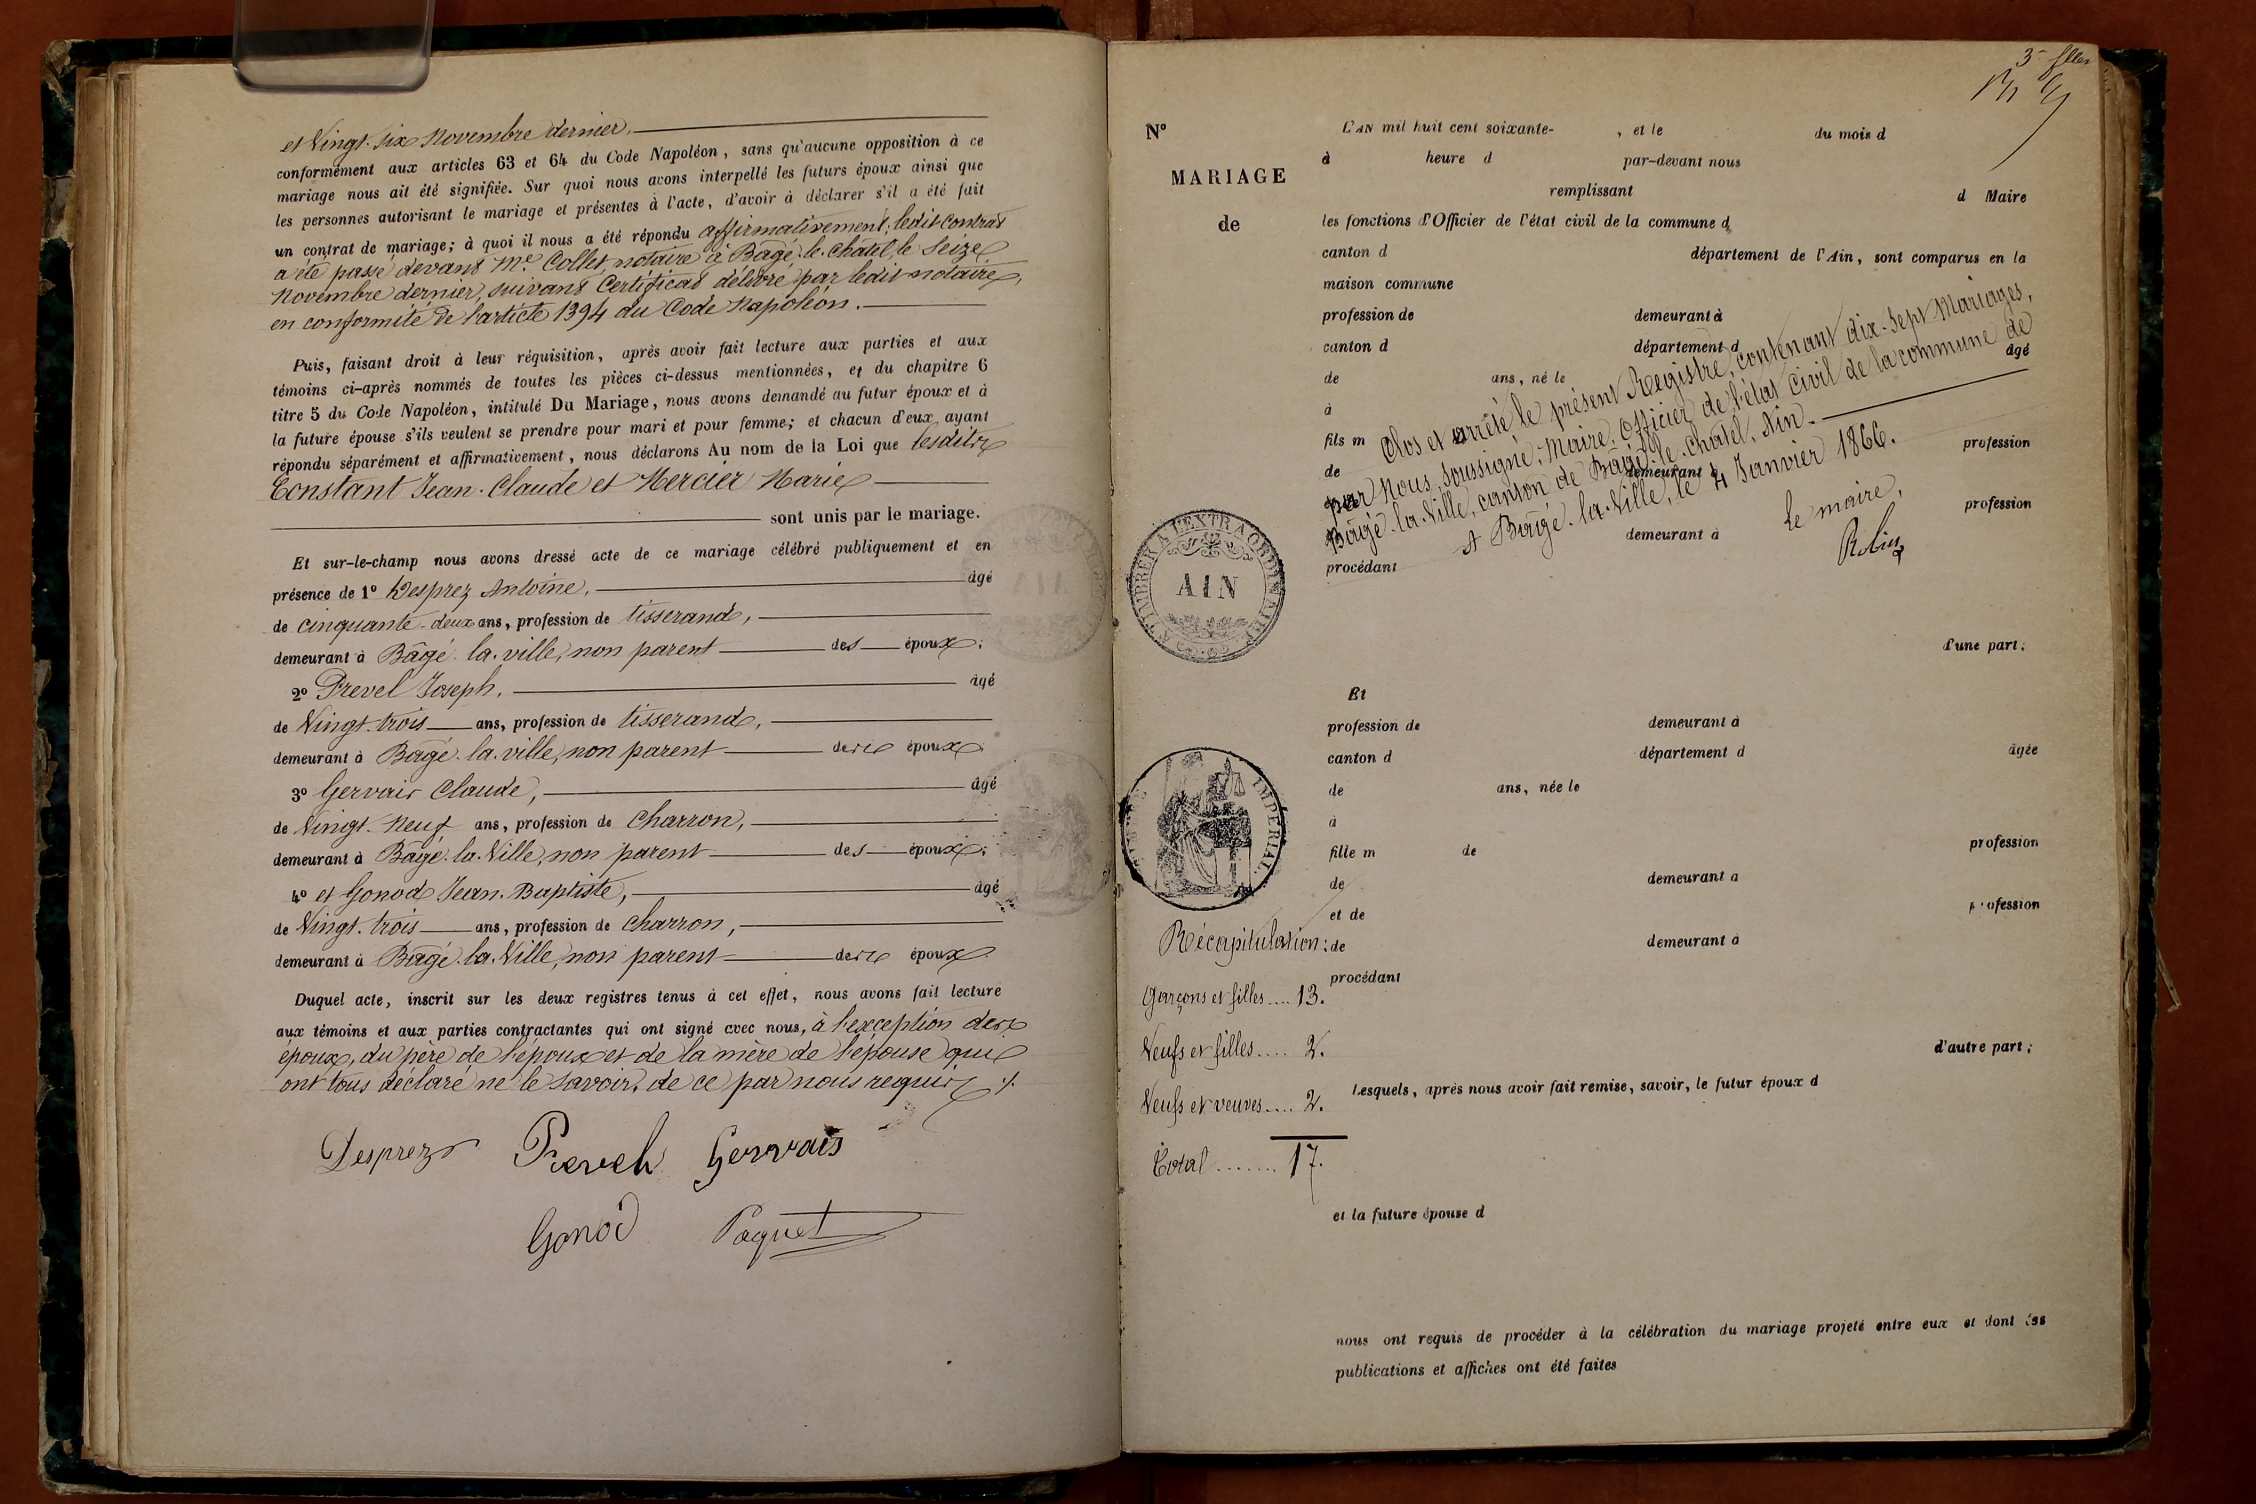 et Vingt-six Novembre dernier.
conformément aux articles 63 et 64 du Code Napoléon, sans qu'aucune opposition à ce
mariage nous ait été signifiée. Sur quoi nous avons interpellé les futurs époux ainsi que
les personnes autorisant le mariage et présentes à l'acte, d'avoir à déclarer s'il a été fait
un contrat de mariage; à quoi il nous a été répondu affirmativement; ledit contrat
a été passé devant Me. Collet, notaire à Bâgé-le-Châtel, le Seize
Novembre dernier, suivant Certificat délivré par ledit notaire,
en conformité de l'article 1394 du Code Napoléon.
Puis, faisant droit à leur réquisition, après avoir fait lecture aux parties et aux
témoins ci-après nommés de toutes les pièces ci-dessus mentionnées, et du chapitre 6
titre 5 du Code Napoléon, intitulé Du Mariage, nous avons demandé au futur époux et à
la future épouse s'ils veulent se prendre pour mari et pour femme; et chacun d'eux ayant
répondu séparément et affirmativement, nous déclarons Au nom de la Loi que lesdits
Constant Jean-Claude et Mercier Marie
sont unis par le mariage.
Et sur-le-champ nous avons dressé acte de ce mariage célébré publiquement et en
présence de 1º Desprez Antoine, âgé
de cinquante-deux ans, profession de tisserand,
demeurant à Bâgé-la-ville, non parent des époux;
2º Prevel Joseph, âgé
de Vingt-trois ans, profession de tisserand,
demeurant à Bâgé-la-ville, non parent des époux
3º Gervais Claude, âgé
de Vingt-Neuf ans, profession de Charron,
demeurant à Bâgé-la-Ville, non parent des époux;
4º et Gonod Jean-Baptiste, âgé
de Vingt-trois ans, profession de charron,
demeurant à Bâgé-la-Ville, non parent des époux
Duquel acte, inscrit sur les deux registres tenus à cet effet, nous avons fait lecture
aux témoins et aux parties contractantes qui ont signé avec nous, à l'exception des
époux, du père de l'époux et de la mère de l'épouse qui
ont tous déclaré ne le savoir, de ce par nous requis ./.
Desprez Prevel Gervais
Gonod Paquet
3 filles
Nº
MARIAGE
de
L'AN mil huit cent soixante- , et le du mois d
à heure d par-devant nous
remplissant d Maire
les fonctions d'Officier de l'état civil de la commune d
canton d département de l'Ain, sont comparus en la
maison commune
profession de demeurant à
canton d département d âgé
de ans, né le
à
fils m
de demeurant à profession
profession
demeurant à
procédant
Clos et arrêté le présent Registre, contenant dix-sept Mariages,
par Nous, soussigné, Maire, Officier de l'état civil de la commune de
Bâgé-la-Ville, canton de Bâgé-le-Châtel, Ain.
A Bâgé-la-Ville, le 4 Janvier 1866.
le maire,
Robin
TIMBRE A L'EXTRAORDINAIRE
AIN
d'une part;
Et
profession de demeurant à
canton d département d âgée
de ans, née le
à
fille m de profession
de demeurant à
et de profession
de demeurant à
procédant
IMPÉRIAL
Récapitulation:
Garçons et filles.... 13.
Veufs et filles.... 2.
Veufs et veuves.... 2.
Total....... 17.
d'autre part;
Lesquels, après nous avoir fait remise, savoir, le futur époux d
et la future épouse d
nous ont requis de procéder à la célébration du mariage projeté entre eux et dont les
publications et affiches ont été faites